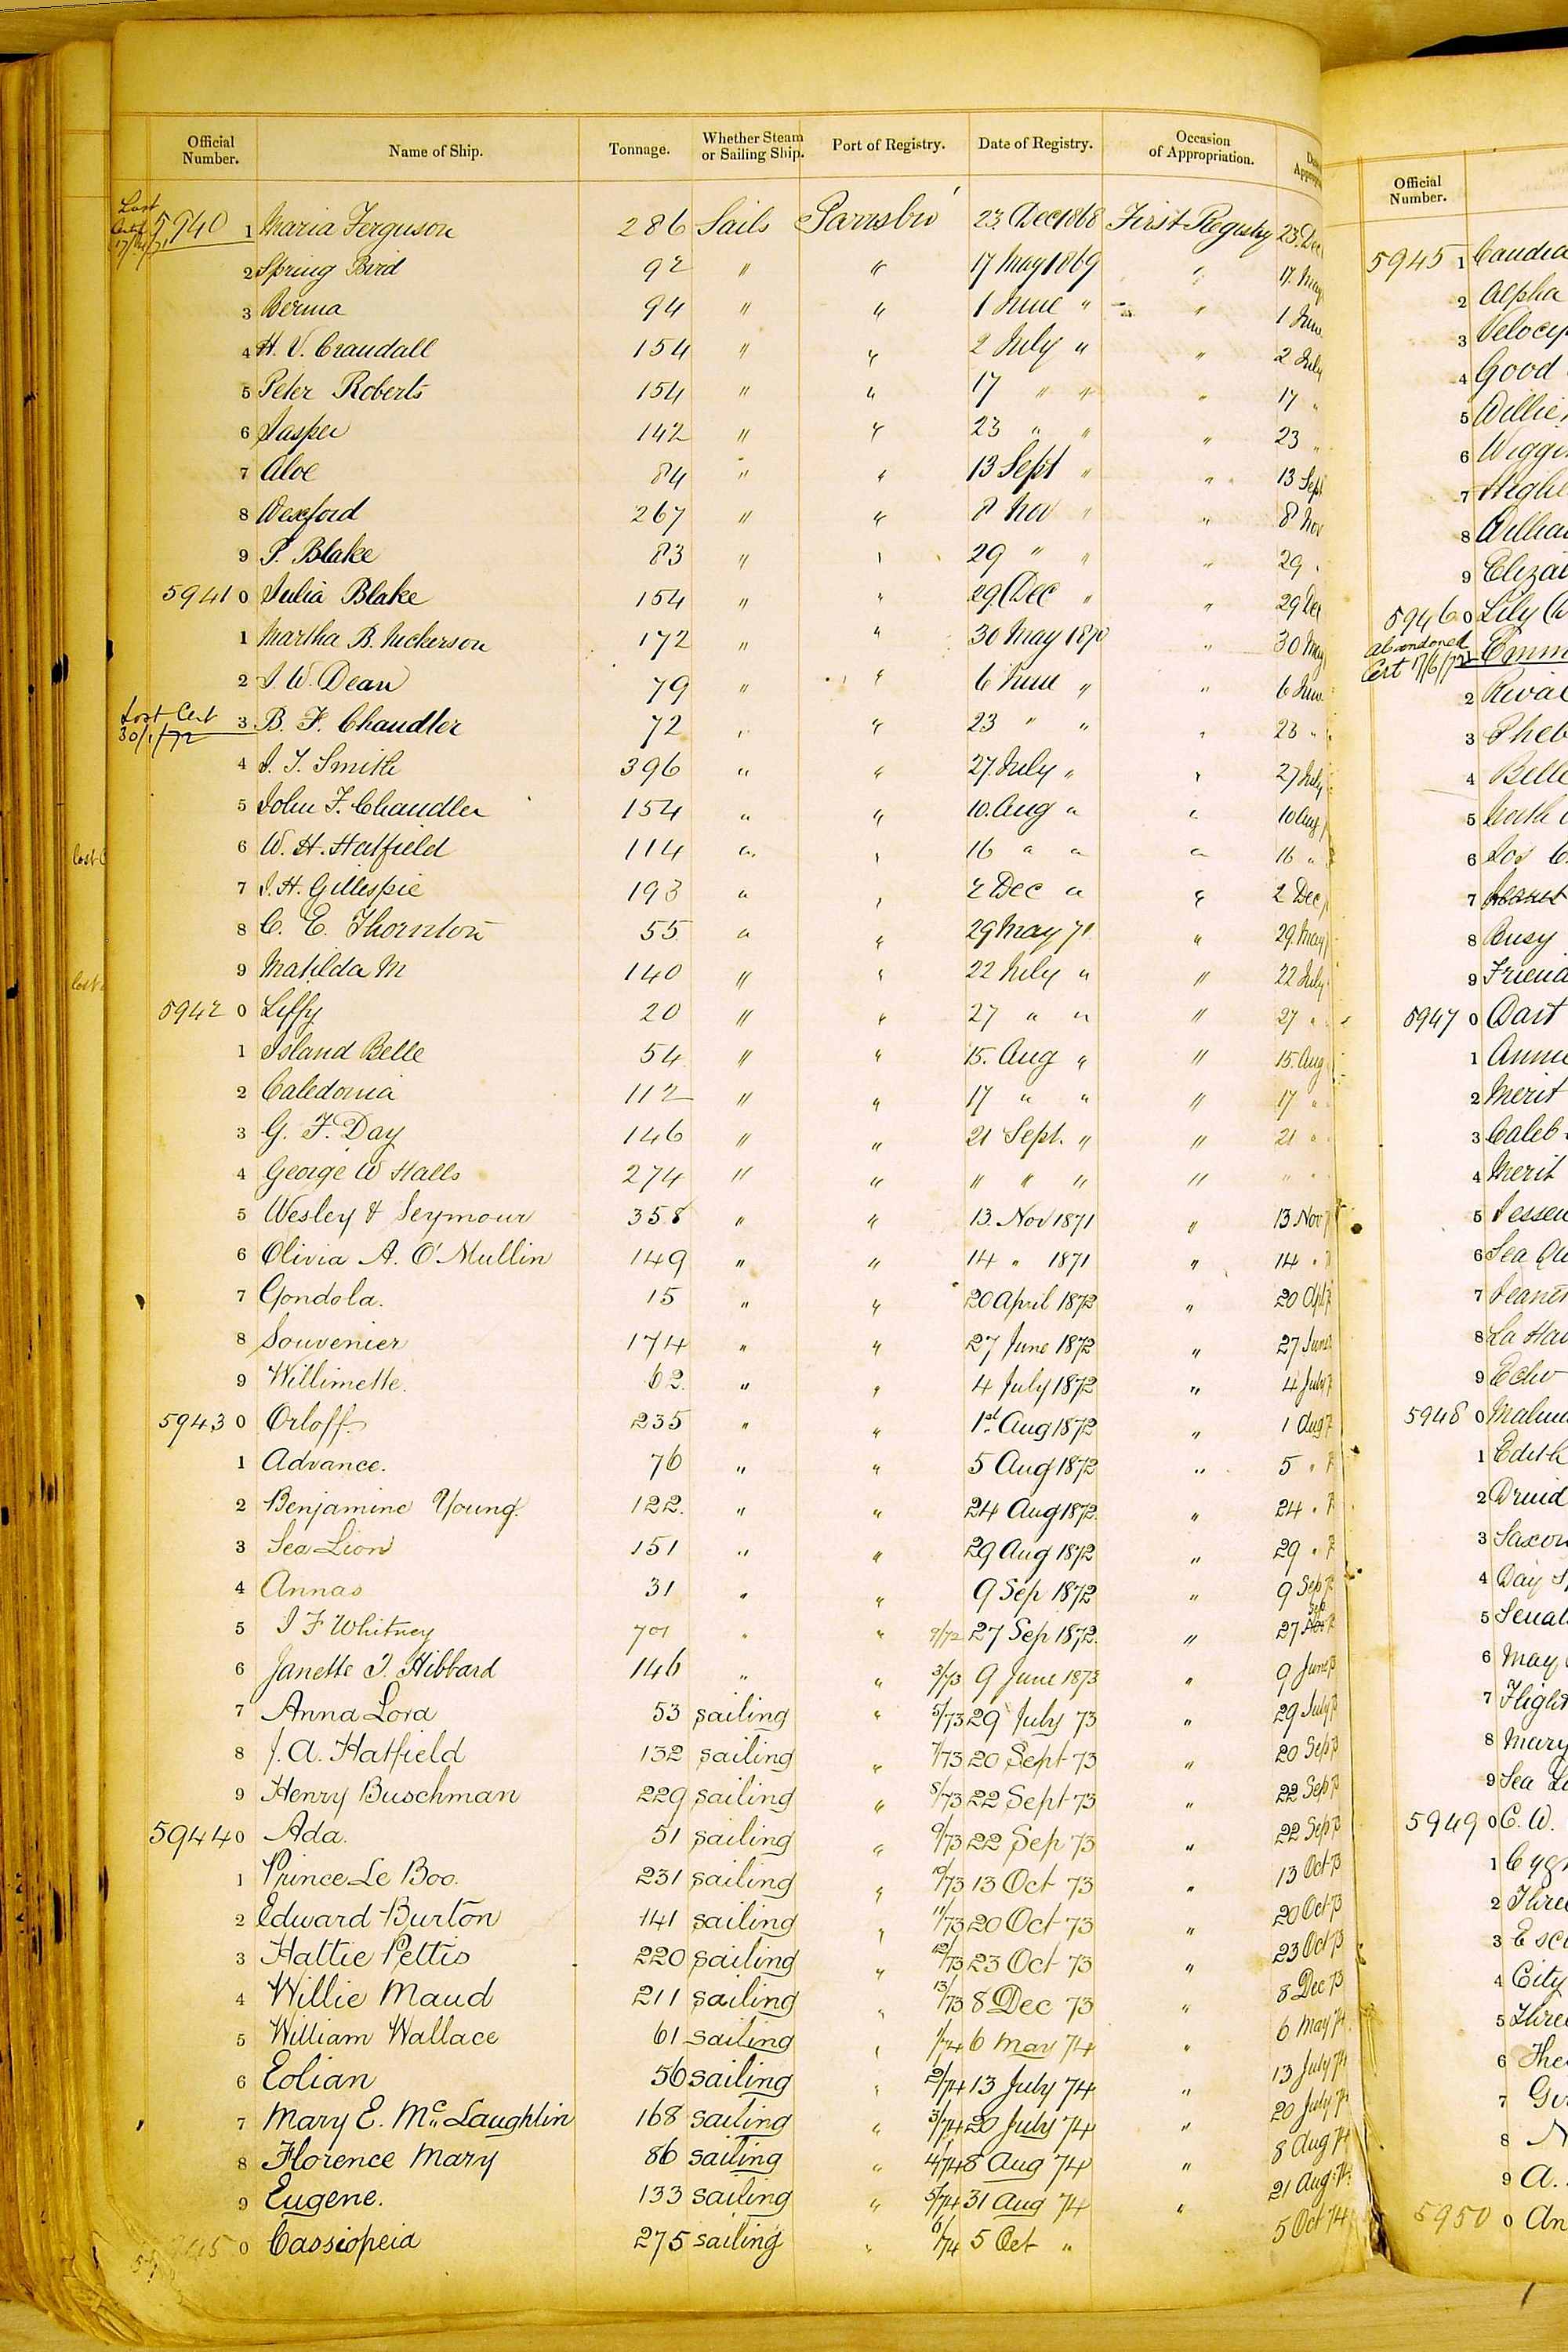 Official Number. Name of Ship. Tonnage. Whether Steam or Sailing Ship. Port of Registry. Date of Registry. Occasion of Appropriation.
Lost
5940 1 Maria Ferguson 286 Sails Parrsbro' 23. Dec 1868 First Registry 23. Dec
2 Spring Bird 92 " " 17 May 1869 " 17. May
3 Berma 94 " " 1 June " " 1 June
4 H. V. Crandall 154 " " 2 July " " 2 July
5 Peter Roberts 154 " " 17 " " " 17 "
6 Jasper 142 " " 23 " " " 23 "
7 Aloe 84 " " 13 Sept " " 13 Sept
8 Wexford 267 " " 8 Nov " " 8 Nov
9 P. Blake 83 " " 29 " " " 29 "
5941 0 Julia Blake 154 " " 29. Dec " " 29 Dec
1 Martha B. Nickerson 172 " " 30 May 1870 " 30 May
2 J. W. Dean 79 " " 6 June " " 6 June
Lost Cert
30/1/72
3 B. F. Chandler 72 " " 23 " " " 23 "
4 J. T. Smith 396 " " 27. July " " 27 July
5 John F. Chandler 154 " " 10. Aug " " 10 Aug
6 W. H. Hatfield 114 " " 16 " " " 16 "
7 J. H. Gillespie 193 " " 2 Dec " " 2 Dec
8 C. E. Thornton 55 " " 29 May 71 " 29. May
9 Matilda M 140 " " 22 July " " 22 July
5942 0 Liffy 20 " " 27 " " " 27 "
1 Island Belle 54 " " 15. Aug " " 15. Aug
2 Caledonia 112 " " 17 " " " 17 "
3 G. F. Day 146 " " 21 Sept. " " 21 "
4 George W Halls 274 " " " " " " " "
5 Wesley & Seymour 358 " " 13. Nov 1871 " 13 Nov
6 Olivia A. O'Mullin 149 " " 14 " 1871 " 14 "
7 Gondola. 15 " " 20 April 1872 " 20 Apl
8 Souvenier 174 " " 27 June 1872 " 27 June
9 Willimette. 62. " " 4 July 1872 " 4 July
5943 0 Orloff. 235 " " 1st. Aug 1872 " 1 Aug
1 Advance. 76 " " 5 Aug 1872 " 5 "
2 Benjamine Young. 122. " " 24 Aug 1872. " 24 "
3 Sea Lion 151 " " 29 Aug 1872 " 29 "
4 Annas 31 " " 9 Sep 1872 " 9 Sep
5 J F Whitney 701 " " 9/72 27 Sep 1872. " 27 Sep
6 Janette T. Hibbard 146 " " 3/73 9 June 1873 " 9 June
7 Anna Lora 53 sailing " 5/73 29 July 73 " 29 July
8 J. A. Hatfield 132 sailing " 7/73 20 Sept 73 " 20 Sep 73
9 Henry Buschman 229 sailing " 8/73 22 Sept 73 " 22 Sep 73
5944 0 Ada. 51 sailing " 9/73 22 Sep 73 " 22 Sep 73
1 Prince Le Boo. 231 sailing " 10/73 13 Oct 73 " 13 Oct 73
2 Edward Burton 141 sailing " 11/73 20 Oct 73 " 20 Oct 73
3 Hattie Pettis 220 sailing " 12/73 23 Oct 73 " 23 Oct 73
4 Willie Maud 211 sailing " 13/73 8 Dec 73 " 8 Dec 73
5 William Wallace 61 sailing " 1/74 6 May 74 " 6 May 74
6 Eolian 56 sailing " 2/74 13 July 74 " 13 July 74
7 Mary E. Mc Laughlin 168 sailing " 3/74 20 July 74 " 20 July 74
8 Florence Mary 86 sailing " 4/74 8 Aug 74 " 8 Aug 74
9 Eugene. 133 sailing " 5/74 31 Aug 74 " 21 Aug 74
5945 0 Cassiopeia 275 sailing " 6/74 5 Oct " 5 Oct 74
Official Number.
5945 1
2 Alpha
3
4 Good
5 Willie
6
7
8
9
5946 0 Lily
abandoned
Cert 17/6/72
2 Rival
3
4 Belle
5 North
6
7
8 Busy
9
5947 0 Dart
1
2 Merit
3 Caleb
4 Merit
5
6 Sea
7
8 La
9 Echo
5948 0
1 Edith
2 Druid
3
4 Day
5
6 May
7
8 Mary
9 Sea
5949 0 C. W.
1
2
3
4 City
5
6 The
7
8
9 A.
5950 0